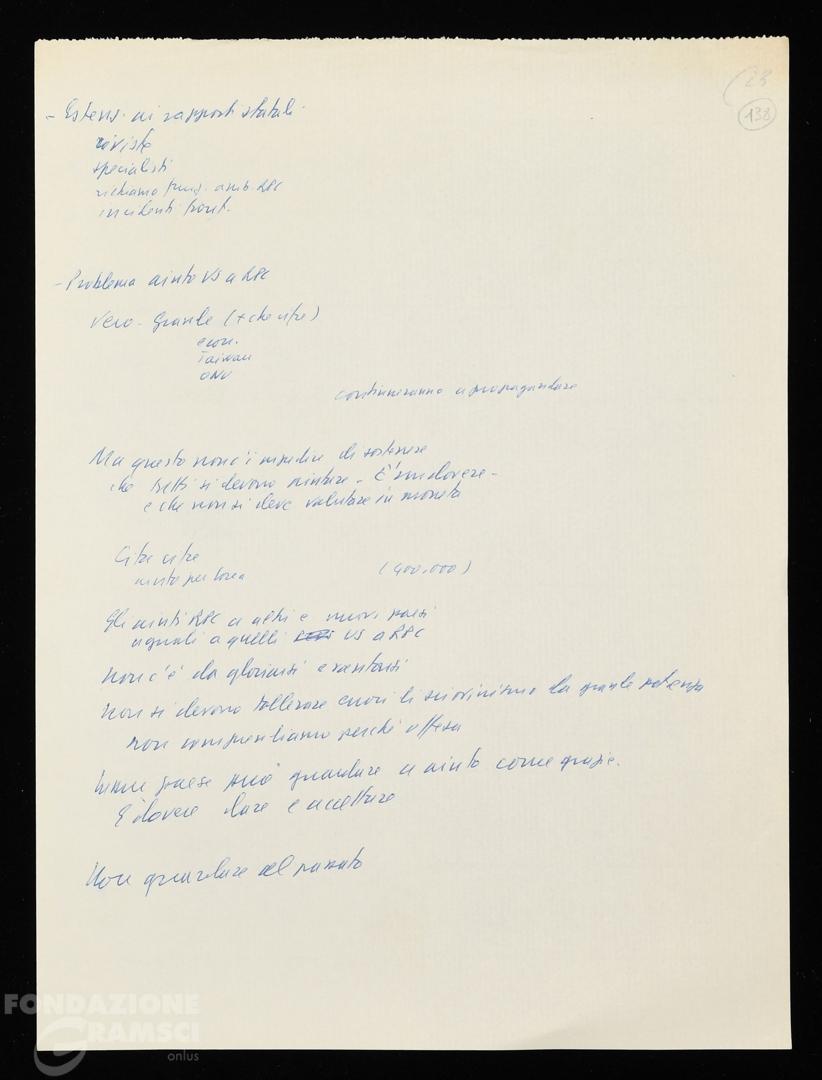 23
138
- Estens. ai rapporti statali
riviste
specialisti
richiamo funz. amb. RPC
incidenti front.
- Problema aiuto US a RPC
Vero. Grande (+ che cifre)
econ.
Taiwan
ONU
continueranno a propagandare
Ma questo non c'impedirà di sostenere
che tutti si devono aiutare. È un dovere -
e che non si deve valutare in moneta
Cifre
aiuto per Corea (400.000)
Gli aiuti RPC a altri e nuovi paesi
uguali a quelli US a RPC
Non c'è da gloriarsi e vantarsi
Non si devono tollerare di sciovinismo da grande potenza
Non commentiamo perché offesa
paese può guardare a aiuto come grazie.
È dovere dare e accettare
Non guardare al passato
FONDAZIONE
GRAMSCI
onlus